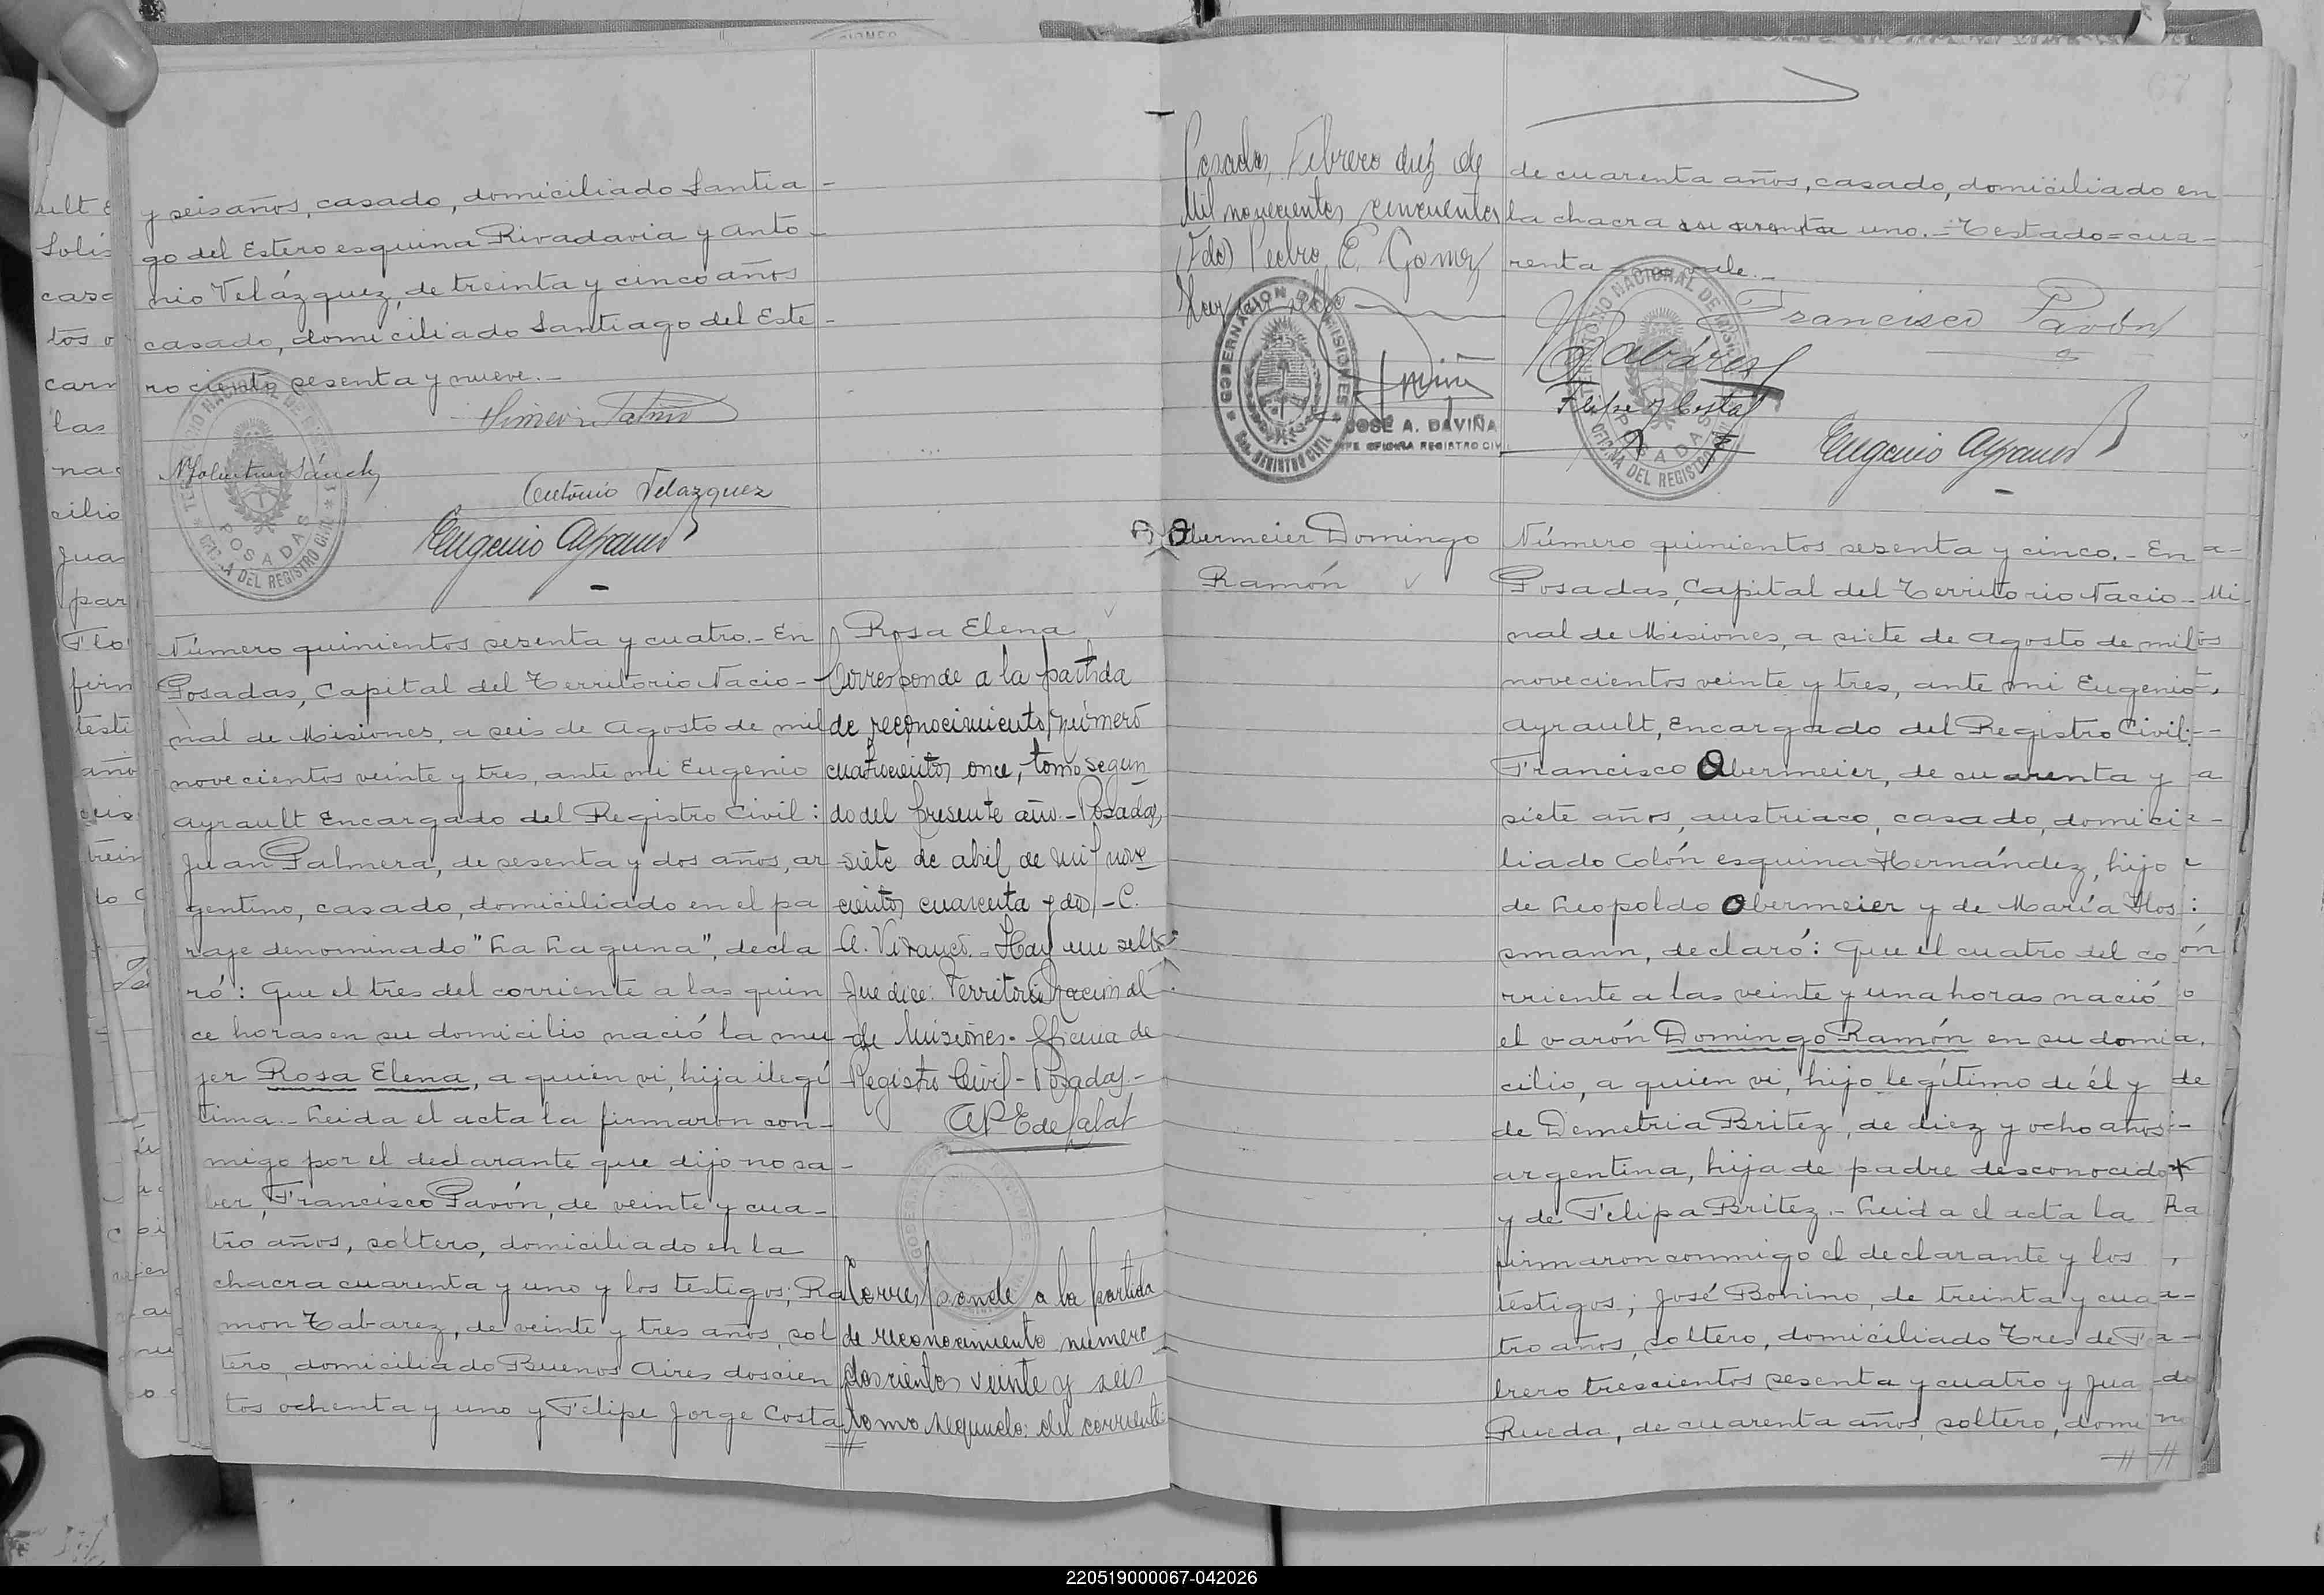 y seis años, casado, domiciliado Santia-
go del Estero esquina Rivadavia y Anto-
nio Velázquez, de treinta y cinco años
casado, domiciliado Santiago del Este-
ro ciento sesenta y nueve.-
Antonio Velazquez
Eugenio Ayrault
TERRITORIO NACIONAL DE MISIONES
OFICINA DEL REGISTRO CIVIL
POSADAS
Número quinientos sesenta y cuatro.- En
Posadas, Capital del Territorio Nacio-
nal de Misiones, a seis de Agosto de mil
novecientos veinte y tres, ante mi Eugenio
Ayrault Encargado del Registro Civil:
Juan Palmera, de sesenta y dos años, ar
gentino, casado, domiciliado en el pa
raje denominado "La Laguna", decla
ró: Que el tres del corriente a las quin
ce horas en su domicilio nació la mu
jer Rosa Elena, a quien vi, hija ilegí
tima.- Leida el acta la firmaron con-
migo por el declarante que dijo no sa-
ber, Francisco Pavón, de veinte y cua-
tro años, soltero, domiciliado en la
chacra cuarenta y uno y los testigos; Ra
mon Tabarez, de veinte y tres años, sol
tero, domiciliado Buenos Aires doscien
tos ochenta y uno y Felipe Jorge Costa,
Rosa Elena
Corresponde a la partida
de reconocimiento número
cuatrocientos once, tomo segun
do del presente año.- Posadas,
siete de abril de mil nove
cientos cuarenta y dos.- C.
A. Vivanco.- Hay un sello
que dice: Territorio Nacional
de Misiones. Oficina de
Registro Civil - Posadas -
Corresponde a la partida
de reconocimiento número
doscientos veinte y seis
tomo segundo: del corriente
Posadas, Febrero diez de
Mil novecientos cincuenta
(Fdo) Pedro E. Gomez
Hay un sello
GOBERNACION DE MISIONES
REGISTRO CIVIL
JOSÉ A. DAVIÑA
JEFE OFICINA REGISTRO CIVIL
de cuarenta años, casado, domiciliado en
la chacra cuarenta uno.- Testado=cua-
renta - no vale.-
Francisco Pavón
Tabárez
Felipe J Costa
Eugenio Ayrault
TERRITORIO NACIONAL DE MISIONES
OFICINA DEL REGISTRO CIVIL
POSADAS
Obermeier Domingo
Ramón
Número quinientos sesenta y cinco.- En
Posadas, Capital del Territorio Nacio-
nal de Misiones, a siete de Agosto de mil
novecientos veinte y tres, ante mi Eugenio
Ayrault, Encargado del Registro Civil:
Francisco Obermeier, de cuarenta y
siete años, austriaco, casado, domici-
liado Colón esquina Hernández, hijo
de Leopoldo Obermeier y de María Hos
smann, declaró: Que el cuatro del co
rriente a las veinte y una horas nació
el varón Domingo Ramón en su domi
cilio, a quien vi, hijo legítimo de él y
de Demetria Britez, de diez y ocho años
argentina, hija de padre desconocido
y de Felipa Britez.- Leida el acta la
firmaron conmigo el declarante y los
testigos; José Bonino, de treinta y cua
tro años, soltero, domiciliado Tres de Fe
brero trescientos sesenta y cuatro y Jua
Rueda, de cuarenta años, soltero, domi
220519000067-042026